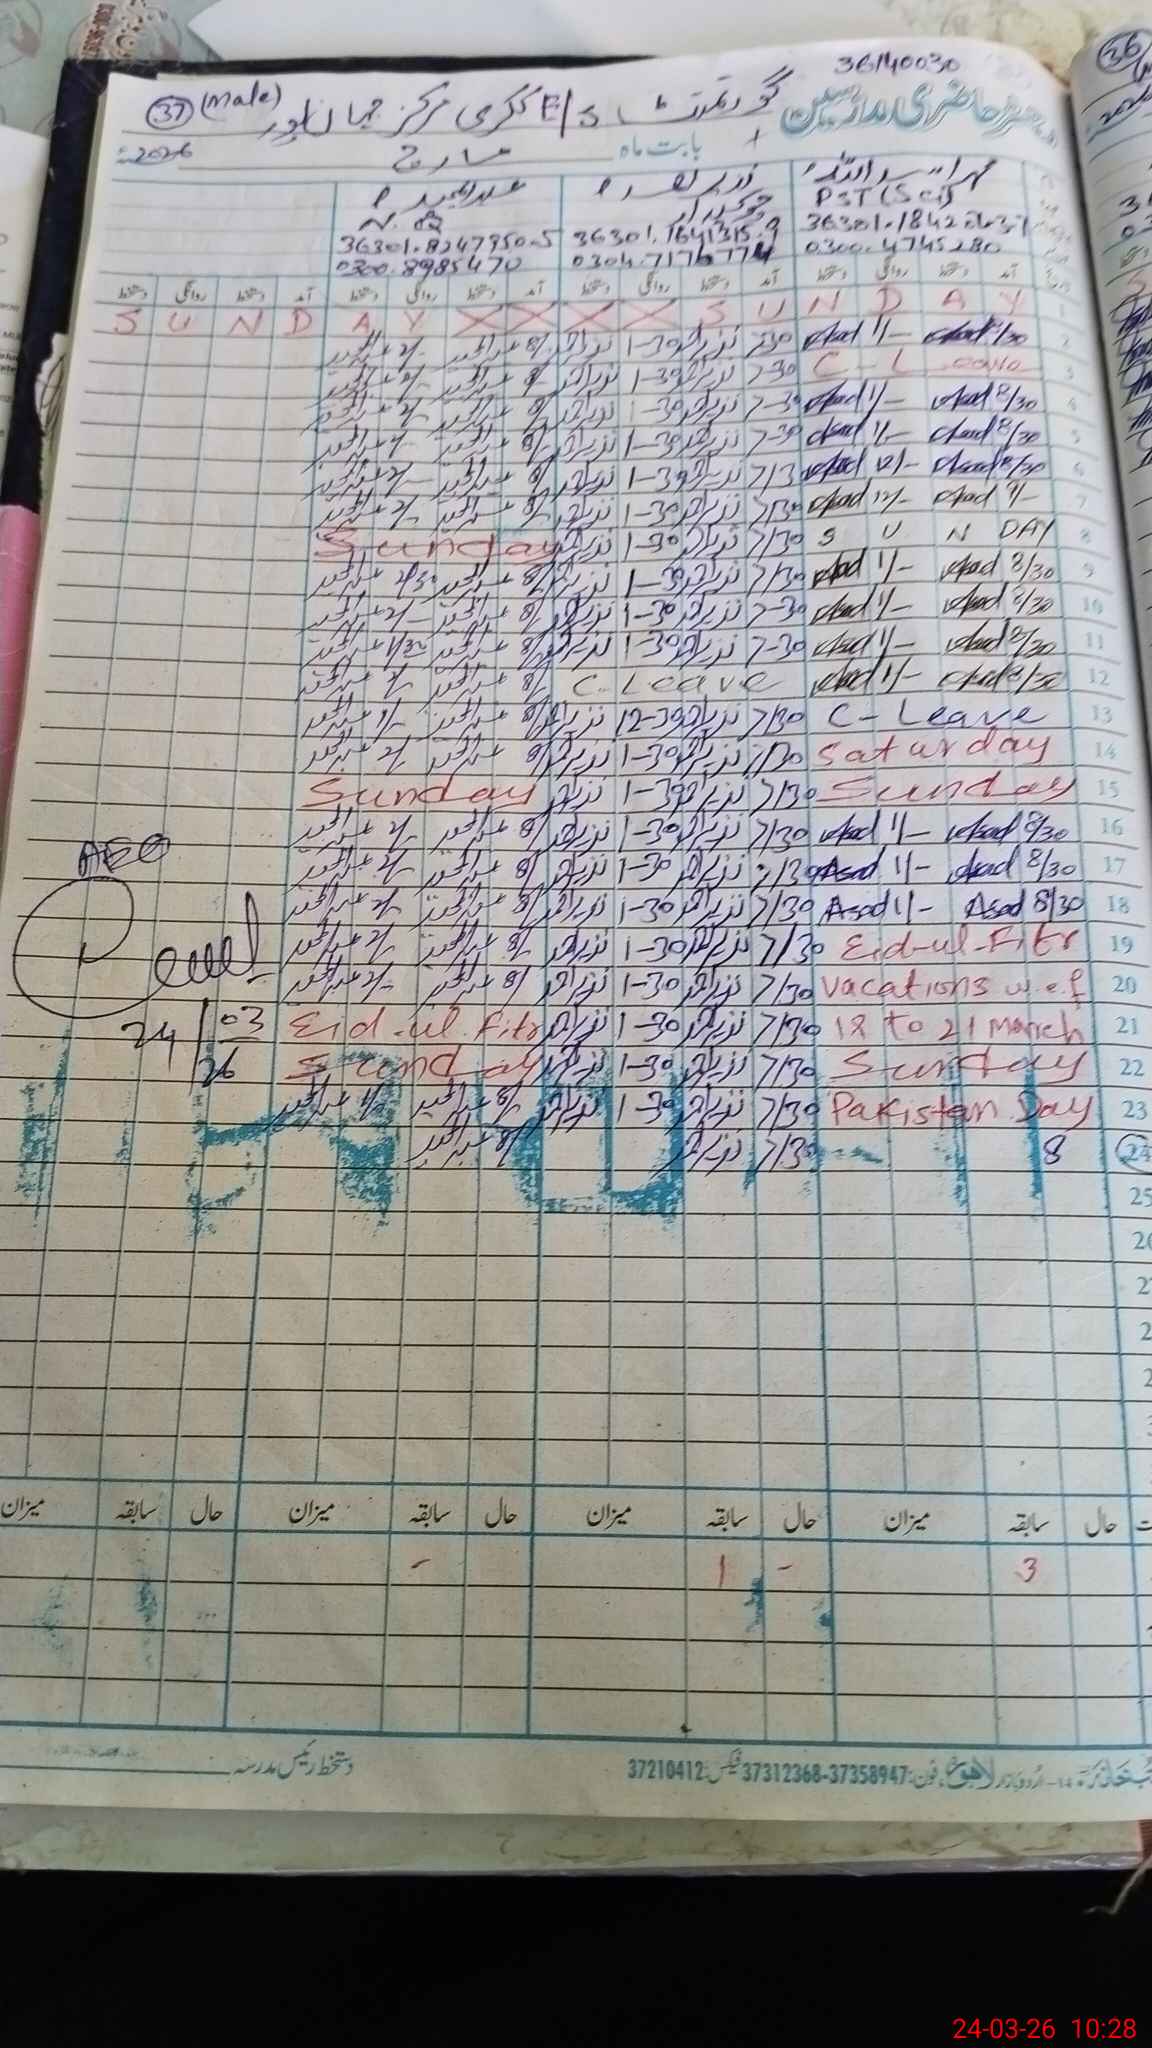 36140030
رجسٹر حاضری مدرسین گورنمنٹ E/S ککری مرکز جہان پور (Male) 37
بابت ماہ مارچ 2026ء
نذیر احمد عبدالمجید
PST (Sci) چوکیدار N.Q
36301.1842 36301.1641315.9 36301.8247950.5
0300.4745280 0304.7176774 0300.8985470
آمد دستخط روانگی دستخط آمد دستخط روانگی دستخط آمد دستخط روانگی دستخط
1 SUNDAY X X X X SUNDAY
2 8/30 Asad 1/- Asad 7-30 نذیر احمد 1-30 نذیر احمد 8/ عبدالمجید 2/- عبدالمجید
3 C-Leave 7-30 نذیر احمد 1-30 نذیر احمد 8/ عبدالمجید 2/- عبدالمجید
4 8/30 Asad 1/- Asad 7-30 نذیر احمد 1-30 نذیر احمد 8/ عبدالمجید 2/- عبدالمجید
5 8/30 Asad 1/- Asad 7-30 نذیر احمد 1-30 نذیر احمد 8/ عبدالمجید عبدالمجید
6 8/30 Asad 12/- Asad 7/30 نذیر احمد 1-30 نذیر احمد 8/ عبدالمجید 2/- عبدالمجید
7 Asad 12/- Asad 7/30 نذیر احمد 1-30 نذیر احمد 8/ عبدالمجید 2/- عبدالمجید
8 SUNDAY 7/30 نذیر احمد 1-30 نذیر احمد Sunday
9 8/30 Asad 1/- Asad 7/30 نذیر احمد 1-30 نذیر احمد 8/ عبدالمجید عبدالمجید
10 8/30 Asad 1/- Asad 7-30 نذیر احمد 1-30 نذیر احمد 8/ عبدالمجید 2/- عبدالمجید
11 8/30 Asad 1/- Asad 7-30 نذیر احمد 1-30 نذیر احمد 8/ عبدالمجید 1/30 عبدالمجید
12 8/30 Asad 1/- Asad C-Leave 8/ عبدالمجید 2/ عبدالمجید
13 C-Leave 7/30 نذیر احمد 12-30 نذیر احمد 8/ عبدالمجید عبدالمجید
14 Saturday 7/30 نذیر احمد 1-30 نذیر احمد 8/ عبدالمجید 2/ عبدالمجید
15 Sunday 7/30 نذیر احمد 1-30 نذیر احمد Sunday
16 8/30 Asad 1/- Asad 7/30 نذیر احمد 1-30 نذیر احمد 8/ عبدالمجید 2/ عبدالمجید
17 8/30 Asad 1/- Asad 7/30 نذیر احمد 1-30 نذیر احمد 8/ عبدالمجید 2/- عبدالمجید
18 8/30 Asad 1/- Asad 7/30 نذیر احمد 1-30 نذیر احمد 8/ عبدالمجید 2/ عبدالمجید
19 Eid-ul-Fitr 7/30 نذیر احمد 1-30 نذیر احمد 8/ عبدالمجید 2/ عبدالمجید
20 vacations w.e.f 7/30 نذیر احمد 1-30 نذیر احمد 8/ عبدالمجید 2/- عبدالمجید
21 18 to 21 March 7/30 نذیر احمد 1-30 نذیر احمد Eid-ul-Fitr
22 Sunday 7/30 نذیر احمد 1-30 نذیر احمد Sunday
23 Pakistan Day 7/30 نذیر احمد 1-30 نذیر احمد 8/ عبدالمجید 1/ عبدالمجید
24 8 7/30 نذیر احمد 8/ عبدالمجید
AEO
24/03/26
25
حال سابقہ میزان حال سابقہ میزان حال سابقہ میزان حال سابقہ میزان
3 - 1 -
اردو بازار لاہور، فون: 37312368-37358947 فیکس: 37210412
دستخط رئیس مدرسہ
24-03-26 10:28